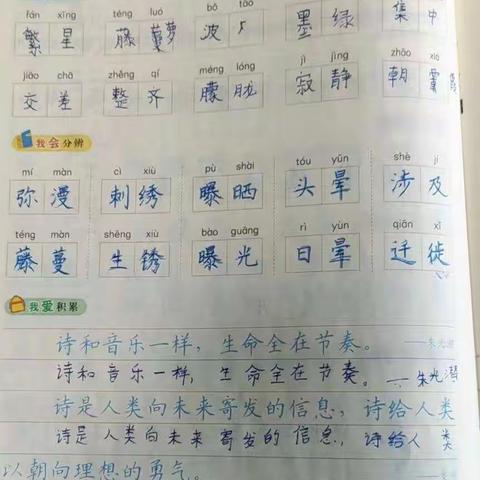 fán xīng téng luó bō tāo jí
繁星 藤萝 波 墨绿 集中
jiāo chā zhěng qí méng lóng jì jìng zhāo xiá
交差 整齐 朦胧 寂静 朝霞
我会分辨
mí màn cì xiù pù shài tóu yūn shè jí
弥漫 刺绣 曝晒 头晕 涉及
téng màn shēng xiù bào guāng rì yùn qiān xǐ
藤蔓 生锈 曝光 日晕 迁徙
我爱积累
诗和音乐一样，生命全在节奏。——朱光潜
诗和音乐一样，生命全在节奏。——朱光潜
诗是人类向未来寄发的信息，诗给人类
诗是人类向未来寄发的信息，诗给人类
以朝向理想的勇气。